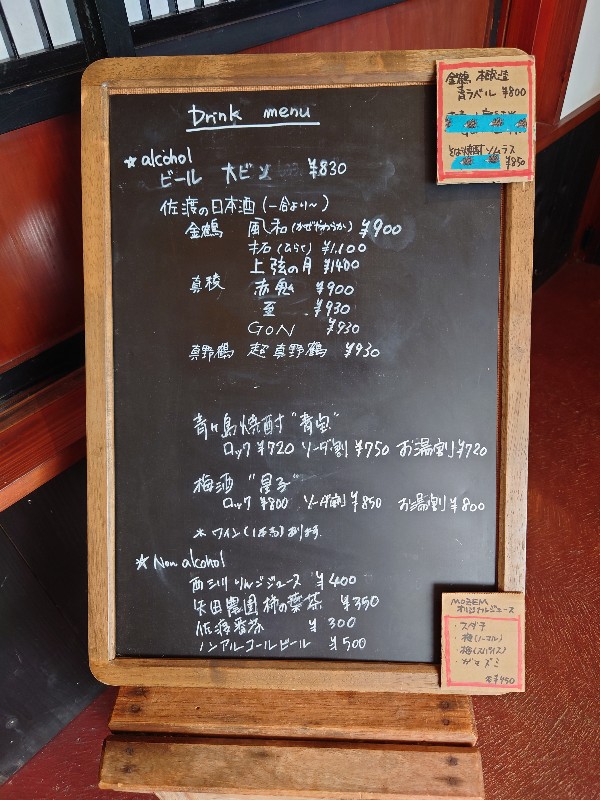 Drink menu
★ alcohol
ビール 大ビン ¥830
佐渡の日本酒 (一合より〜)
金鶴 風和(かぜやわらか) ¥900
拓(ひらく) ¥1,100
上弦の月 ¥1400
真稜 赤鬼 ¥900
至 ¥930
GON ¥930
真野鶴 超 真野鶴 ¥930
青ヶ島焼酎 "青宝"
ロック ¥720 ソーダ割 ¥750 お湯割 ¥720
梅酒 "星子"
ロック ¥800 ソーダ割 ¥850 お湯割 ¥800
* ワイン あります。
★ Non alcohol
西三川りんごジュース ¥400
矢田農園 柿の葉茶 ¥350
佐渡番茶 ¥300
ノンアルコールビール ¥500
金鶴 本醸造
青ラベル ¥800
そば焼酎 ソムラス
¥850
MOZEM
オリジナルジュース
・スダチ
・梅(ノーマル)
・梅(スパイス)
・ガマズミ
各¥450